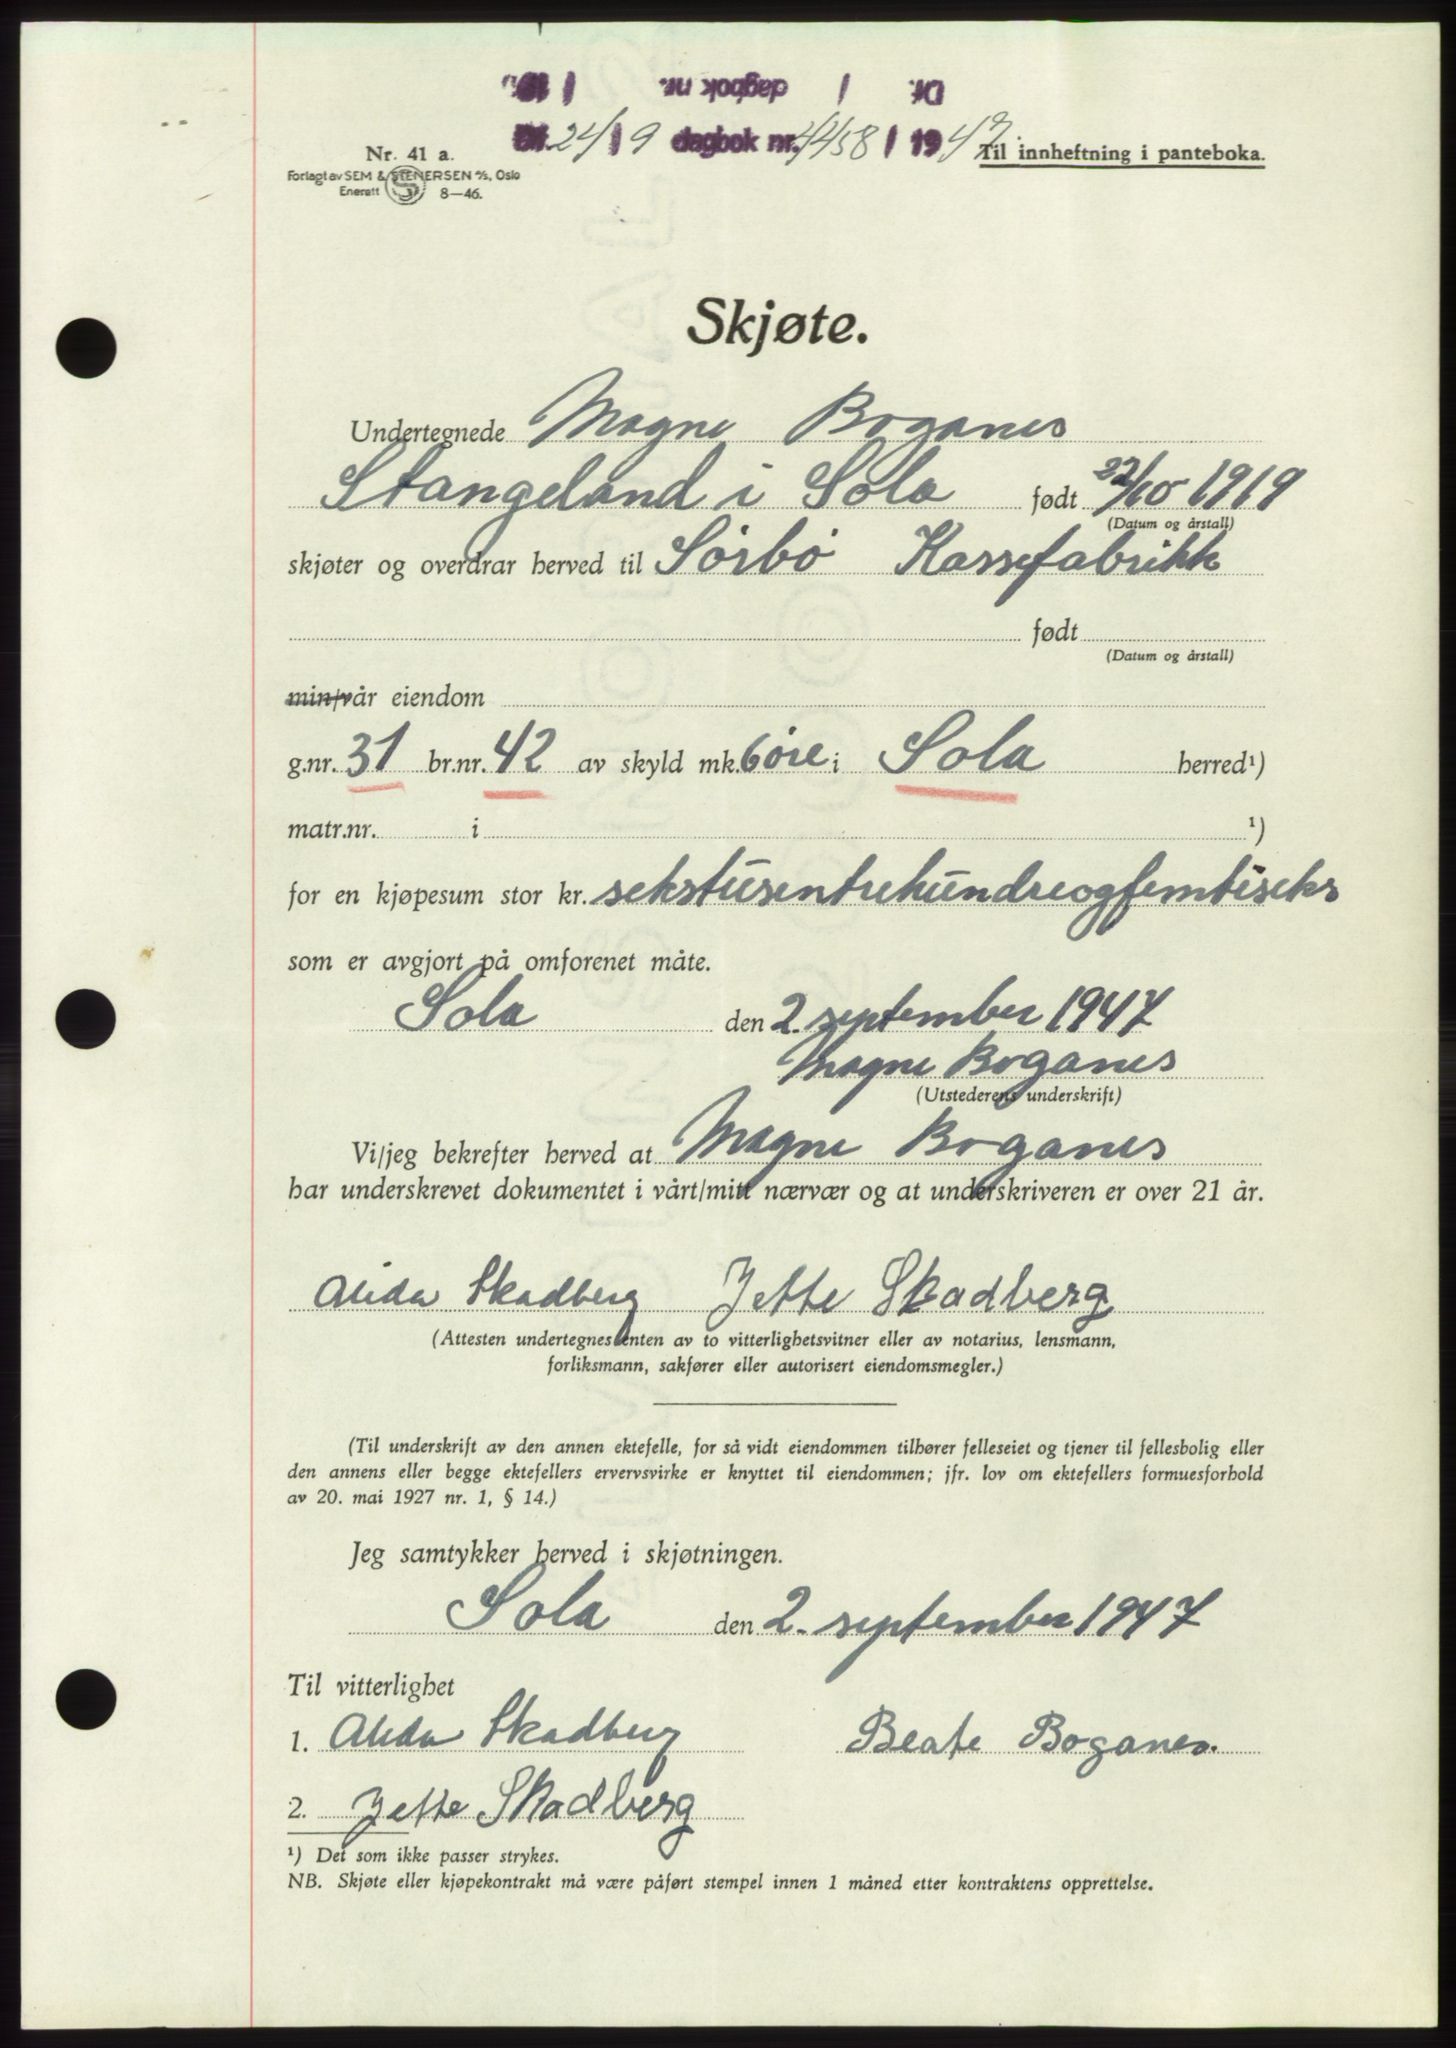 Df. / dagbok nr. / 19
Df. 24/9 dagbok nr. 4458 / 1947
Nr. 41 a.
Til innheftning i panteboka.
Forlagt av SEM & STENERSEN A/S, Oslo
Enerett S 8—46.
Skjøte.
Undertegnede Magne Boganes
Stangeland i Sola født 22/10 1919
(Datum og årstall)
skjøter og overdrar herved til Sørbø Kassefabrikk
født
(Datum og årstall)
min/vår eiendom
g.nr. 31 br.nr. 42 av skyld mk. 6 øre i Sola herred¹)
matr.nr. i ¹)
for en kjøpesum stor kr. sekstusentrehundreogfemtiseks
som er avgjort på omforenet måte.
Sola den 2. september 1947
Magne Boganes
(Utstederens underskrift)
Vi/jeg bekrefter herved at Magne Boganes
har underskrevet dokumentet i vårt/mitt nærvær og at underskriveren er over 21 år.
Alida Skadberg Jette Skadberg
(Attesten undertegnes enten av to vitterlighetsvitner eller av notarius, lensmann,
forliksmann, sakfører eller autorisert eiendomsmegler.)
(Til underskrift av den annen ektefelle, for så vidt eiendommen tilhører felleseiet og tjener til fellesbolig eller
den annens eller begge ektefellers ervervsvirke er knyttet til eiendommen; jfr. lov om ektefellers formuesforhold
av 20. mai 1927 nr. 1, § 14.)
Jeg samtykker herved i skjøtningen.
Sola den 2. september 1947
Til vitterlighet
1. Alida Skadberg Beate Boganes.
2. Jette Skadberg
¹) Det som ikke passer strykes.
NB. Skjøte eller kjøpekontrakt må være påført stempel innen 1 måned etter kontraktens opprettelse.